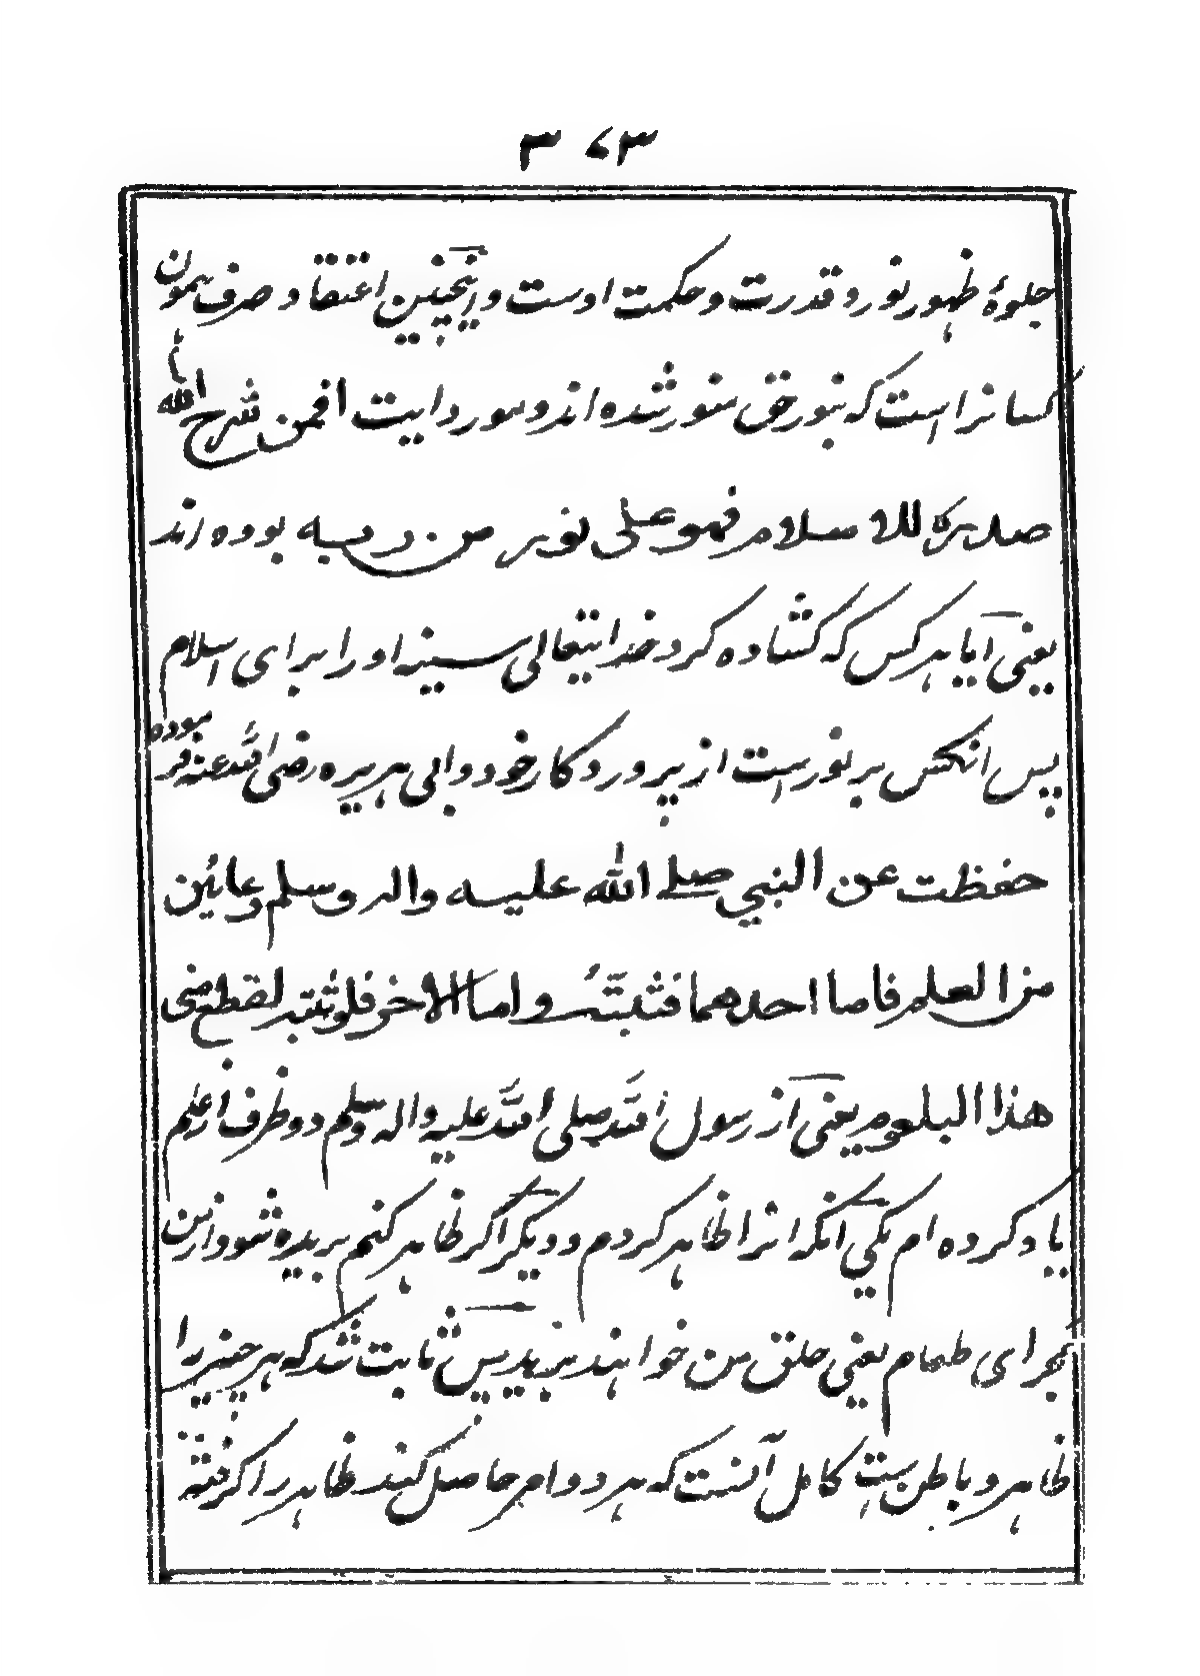 ۳۷۳
جلوهٔ ظهور نور و قدرت و حکمت اوست و اینچنین اعتقاد صرف همون
کسانراست که بنور حق منور شده اند و مورد ایت افمن شرح الله
صدره للاسلام فهو علی نور من ربه بوده اند
یعنی آیا هرکس که کشاده کرد خدایتعالی سینه او را برای اسلام
پس آنکس بر نورست از پروردگار خود و ابی هریره رضی الله عنه فرموده
حفظت عن النبی صلی الله علیه واله وسلم وعائین
من العلم فاما احدهما فثبتته واما الاخر فلو ثبتته لقطع منی
هذا البلعوم یعنی از رسول الله صلی الله علیه واله وسلم دو ظرف از علم
یاد کرده ام یکی آنکه انرا ظاهر کردم و دیگر اگر ظاهر کنم بریده شود از من
مجرای طعام یعنی حلق من خواهند برید پس ثابت شد که هر چیز را
ظاهر و باطن ست کامل آنست که هر دو امر حاصل کند ظاهر را گرفته